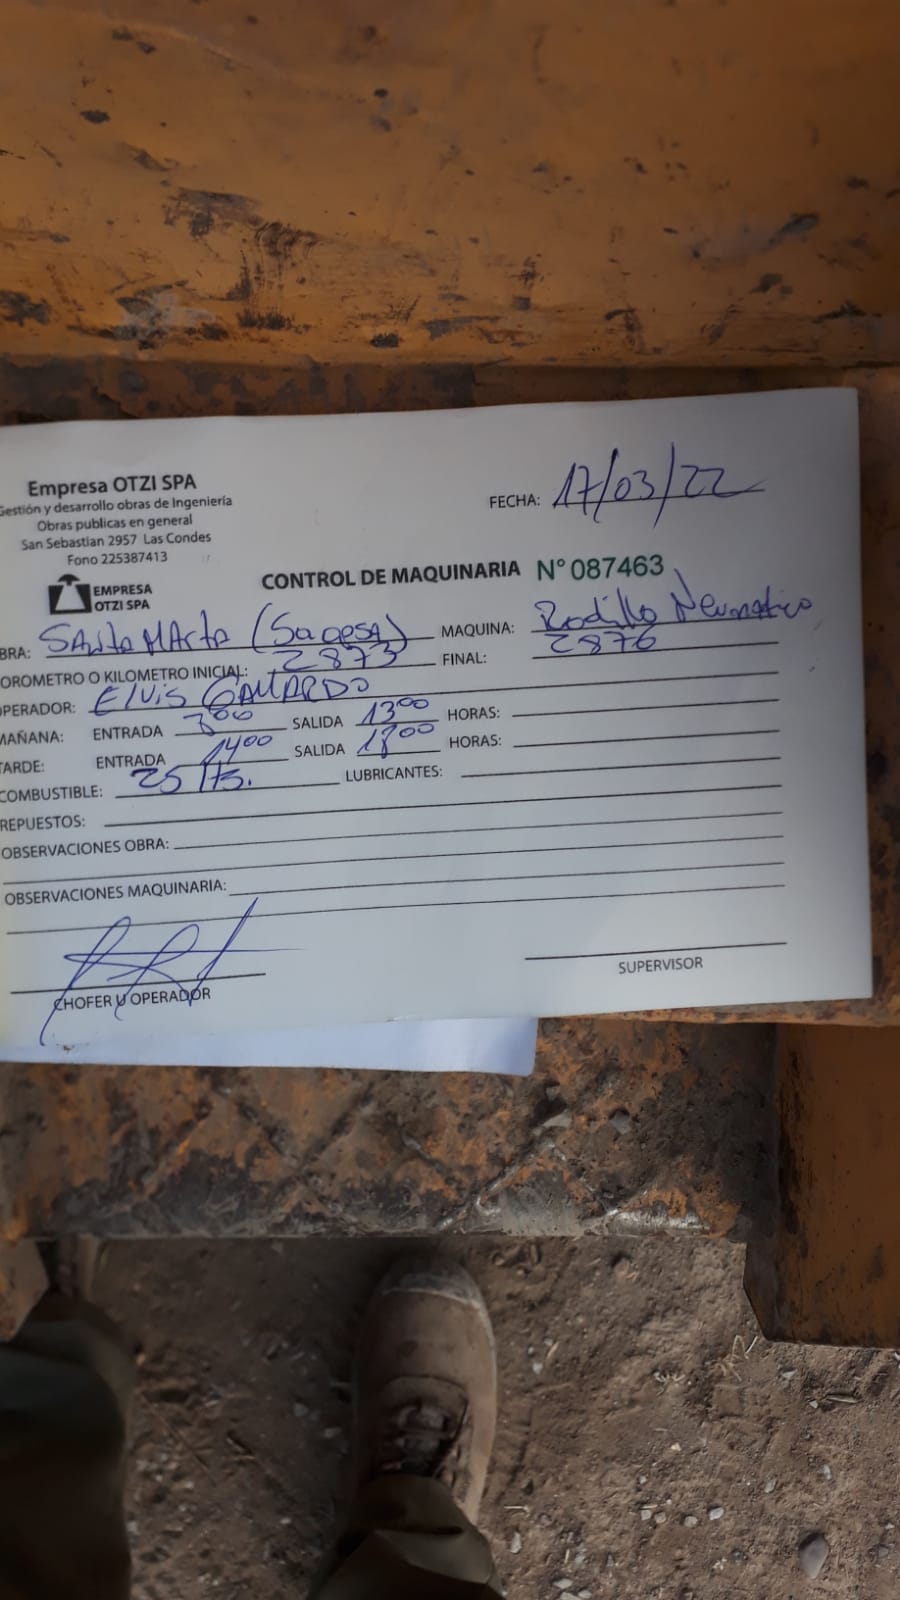 Empresa OTZI SPA
Gestión y desarrollo obras de Ingeniería
Obras publicas en general
San Sebastian 2957 Las Condes
Fono 225387413
EMPRESA
OTZI SPA
FECHA: 17/03/22
CONTROL DE MAQUINARIA N° 087463
BRA: Santa Marta (Sagesa) MAQUINA: Rodillo Neumatico
OROMETRO O KILOMETRO INICIAL: 2873 FINAL: 2876
OPERADOR: Elvis GALLARDO
MAÑANA: ENTRADA SALIDA 13 00 HORAS:
TARDE: ENTRADA 14 00 SALIDA 18 00 HORAS:
COMBUSTIBLE: 25 lts. LUBRICANTES:
REPUESTOS:
OBSERVACIONES OBRA:
OBSERVACIONES MAQUINARIA:
CHOFER U OPERADOR SUPERVISOR